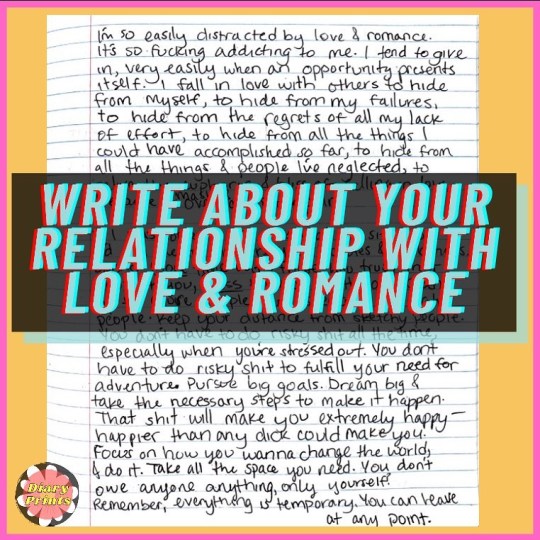 I'm so easily distracted by love & romance.
It's so fucking addicting to me. I tend to give
in, very easily when an opportunity presents
itself. I fall in love with others to hide
from myself, to hide from my failures,
to hide from the regrets of all my lack
of effort, to hide from all the things I
could have accomplished so far, to hide from
all the things & people I've neglected, to
WRITE ABOUT YOUR
RELATIONSHIP WITH
LOVE & ROMANCE
people. Keep your distance from sketchy people.
You don't have to do risky shit all the time,
especially when you're stressed out. You don't
have to do risky shit to fulfill your need for
adventure. Pursue big goals. Dream big &
take the necessary steps to make it happen.
That shit will make you extremely happy—
happier than any dick could make you.
Focus on how you wanna change the world,
& do it. Take all the space you need. You don't
owe anyone anything, only yourself.
Remember, everything is temporary. You can leave
at any point.
Diary
Prints